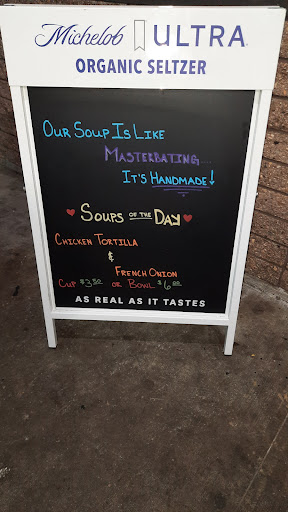 Michelob ULTRA
ORGANIC SELTZER
OUR SOUP IS LIKE
MASTERBATING...
IT'S HANDMADE!
SOUPS OF THE DAY
CHICKEN TORTILLA
&
FRENCH ONION
CUP $3.50 OR BOWL $6.00
AS REAL AS IT TASTES